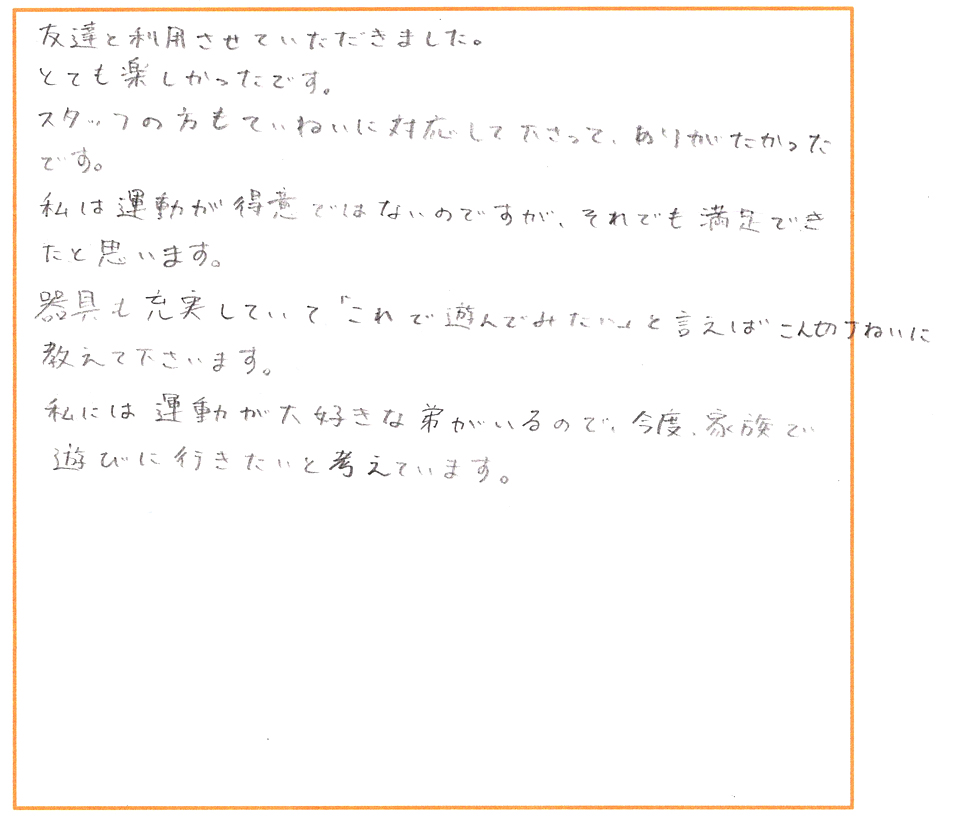 友達と利用させていただきました。
とても楽しかったです。
スタッフの方もていねいに対応して下さって、ありがたかった
です。
私は運動が得意ではないのですが、それでも満足でき
たと思います。
器具も充実していて「これで遊んでみたい」と言えばこん切丁ねいに
教えて下さいます。
私には運動が大好きな弟がいるので、今度、家族で
遊びに行きたいと考えています。